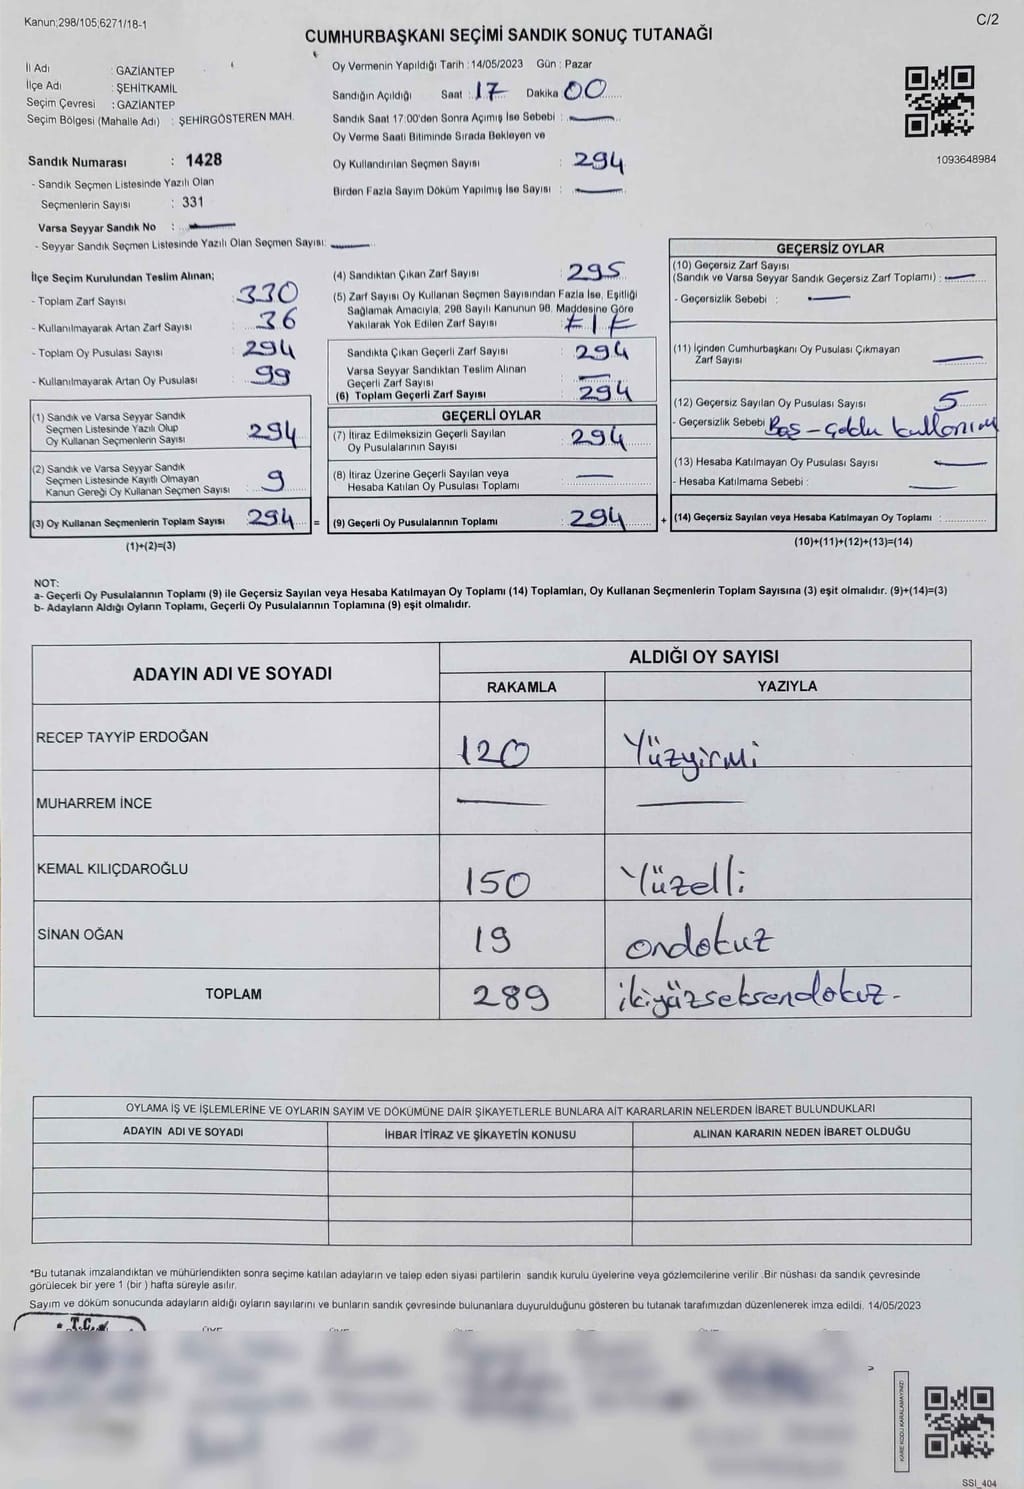 Kanun;298/105;6271/18-1
C/2
CUMHURBAŞKANI SEÇİMİ SANDIK SONUÇ TUTANAĞI
İl Adı : GAZİANTEP
İlçe Adı : ŞEHİTKAMİL
Seçim Çevresi : GAZİANTEP
Seçim Bölgesi (Mahalle Adı) : ŞEHİRGÖSTEREN MAH.
Sandık Numarası : 1428
- Sandık Seçmen Listesinde Yazılı Olan
Seçmenlerin Sayısı : 331
Varsa Seyyar Sandık No :
- Seyyar Sandık Seçmen Listesinde Yazılı Olan Seçmen Sayısı:
Oy Vermenin Yapıldığı Tarih : 14/05/2023 Gün : Pazar
Sandığın Açıldığı Saat : 17 Dakika 00
Sandık Saat 17:00'den Sonra Açımış İse Sebebi :
Oy Verme Saati Bitiminde Sırada Bekleyen ve
Oy Kullandırılan Seçmen Sayısı : 294
Birden Fazla Sayım Döküm Yapılmış İse Sayısı :
1093648984
İlçe Seçim Kurulundan Teslim Alınan;
- Toplam Zarf Sayısı : 330
- Kullanılmayarak Artan Zarf Sayısı : 36
- Toplam Oy Pusulası Sayısı : 294
- Kullanılmayarak Artan Oy Pusulası : 99
(1) Sandık ve Varsa Seyyar Sandık
Seçmen Listesinde Yazılı Olup
Oy Kullanan Seçmenlerin Sayısı : 294
(2) Sandık ve Varsa Seyyar Sandık
Seçmen Listesinde Kayıtlı Olmayan
Kanun Gereği Oy Kullanan Seçmen Sayısı : 9
(3) Oy Kullanan Seçmenlerin Toplam Sayısı : 294 =
(1)+(2)=(3)
(4) Sandıktan Çıkan Zarf Sayısı : 295
(5) Zarf Sayısı Oy Kullanan Seçmen Sayısından Fazla İse, Eşitliği
Sağlamak Amacıyla, 298 Sayılı Kanunun 98. Maddesine Göre
Yakılarak Yok Edilen Zarf Sayısı :
Sandıkta Çıkan Geçerli Zarf Sayısı : 294
Varsa Seyyar Sandıktan Teslim Alınan
Geçerli Zarf Sayısı :
(6) Toplam Geçerli Zarf Sayısı : 294
GEÇERLİ OYLAR
(7) İtiraz Edilmeksizin Geçerli Sayılan
Oy Pusulalarının Sayısı : 294
(8) İtiraz Üzerine Geçerli Sayılan veya
Hesaba Katılan Oy Pusulası Toplamı :
(9) Geçerli Oy Pusulalarının Toplamı : 294 +
GEÇERSİZ OYLAR
(10) Geçersiz Zarf Sayısı
(Sandık ve Varsa Seyyar Sandık Geçersiz Zarf Toplamı) :
- Geçersizlik Sebebi :
(11) İçinden Cumhurbaşkanı Oy Pusulası Çıkmayan
Zarf Sayısı
(12) Geçersiz Sayılan Oy Pusulası Sayısı : 5
- Geçersizlik Sebebi Boş - çoklu kullanım
(13) Hesaba Katılmayan Oy Pusulası Sayısı :
- Hesaba Katılmama Sebebi :
(14) Geçersiz Sayılan veya Hesaba Katılmayan Oy Toplamı :
(10)+(11)+(12)+(13)=(14)
NOT:
a- Geçerli Oy Pusulalarının Toplamı (9) ile Geçersiz Sayılan veya Hesaba Katılmayan Oy Toplamı (14) Toplamları, Oy Kullanan Seçmenlerin Toplam Sayısına (3) eşit olmalıdır. (9)+(14)=(3)
b- Adayların Aldığı Oyların Toplamı, Geçerli Oy Pusulalarının Toplamına (9) eşit olmalıdır.
ADAYIN ADI VE SOYADI
ALDIĞI OY SAYISI
RAKAMLA YAZIYLA
RECEP TAYYİP ERDOĞAN 120 Yüzyirmi
MUHARREM İNCE
KEMAL KILIÇDAROĞLU 150 Yüzelli
SİNAN OĞAN 19 ondokuz
TOPLAM 289 ikiyüzseksendokuz-
OYLAMA İŞ VE İŞLEMLERİNE VE OYLARIN SAYIM VE DÖKÜMÜNE DAİR ŞİKAYETLERLE BUNLARA AİT KARARLARIN NELERDEN İBARET BULUNDUKLARI
ADAYIN ADI VE SOYADI İHBAR İTİRAZ VE ŞİKAYETİN KONUSU ALINAN KARARIN NEDEN İBARET OLDUĞU
*Bu tutanak imzalandıktan ve mühürlendikten sonra seçime katılan adayların ve talep eden siyasi partilerin sandık kurulu üyelerine veya gözlemcilerine verilir .Bir nüshası da sandık çevresinde
görülecek bir yere 1 (bir ) hafta süreyle asılır.
Sayım ve döküm sonucunda adayların aldığı oyların sayılarını ve bunların sandık çevresinde bulunanlara duyurulduğunu gösteren bu tutanak tarafımızdan düzenlenerek imza edildi. 14/05/2023
T.C.
KARE KODU KARALAMAYINIZ!
SSI_404